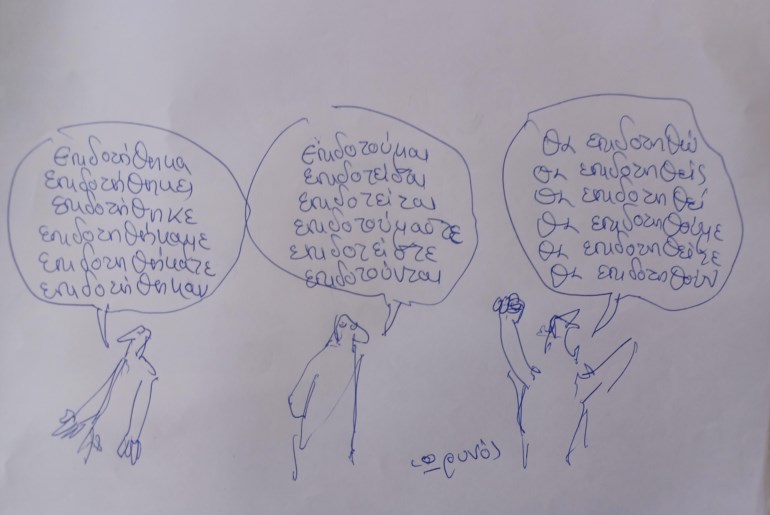 επιδοτήθηκα
επιδοτήθηκες
επιδοτήθηκε
επιδοτηθήκαμε
επιδοτηθήκατε
επιδοτήθηκαν
επιδοτούμαι
επιδοτείσαι
επιδοτείται
επιδοτούμαστε
επιδοτείστε
επιδοτούνται
θα επιδοτηθώ
θα επιδοτηθείς
θα επιδοτηθεί
θα επιδοτηθούμε
θα επιδοτηθείτε
θα επιδοτηθούν